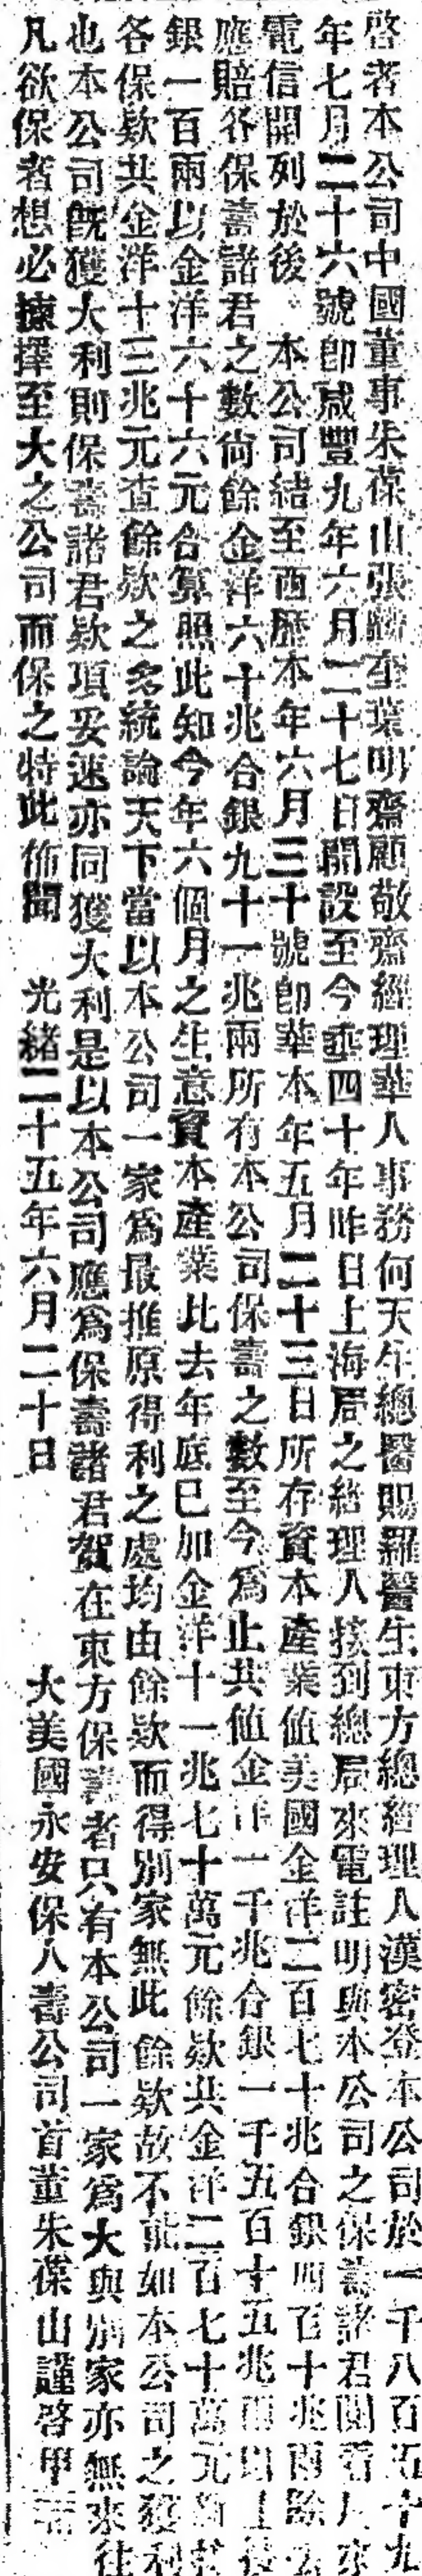 啓者本公司中國董事朱葆山張麟奎葉明齋顧敬齋經理華人事務何天生總醫賜羅醫生東方總經理人漢密登本公司於一千八百五十九
年七月二十六號卽咸豐九年六月二十七日開設至今垂四十年昨日上海局之經理人接到總局來電註明與本公司之保壽諸君關着
電信開列於後 本公司結至西歷本年六月三十號卽華本年五月二十三日所存資本產業值美國金洋二百七十兆合銀四百十兆兩除
應賠各保壽諸君之數尙餘金洋六十兆合銀九十一兆兩所有本公司保壽之數至今爲止共值金洋一千兆合銀一千五百十五兆兩以上
銀一百兩以金洋六十六元合算照此知今年六個月之生意資本產業比去年底已加金洋十一兆七十萬元餘欵共金洋二百七十萬元
各保欵共金洋十三兆元查餘欵之多統論天下當以本公司一家爲最推原得利之處均由餘欵而得別家無此餘欵故不能如本公司之獲利
也本公司旣獲大利則保壽諸君欵項妥速亦同獲大利是以本公司應爲保壽諸君賀在東方保壽者只有本公司一家爲大與別家亦無來往
凡欲保者想必揀擇至大之公司而保之特此佈聞 光緒二十五年六月二十日 大美國永安保人壽公司首董朱葆山謹啓